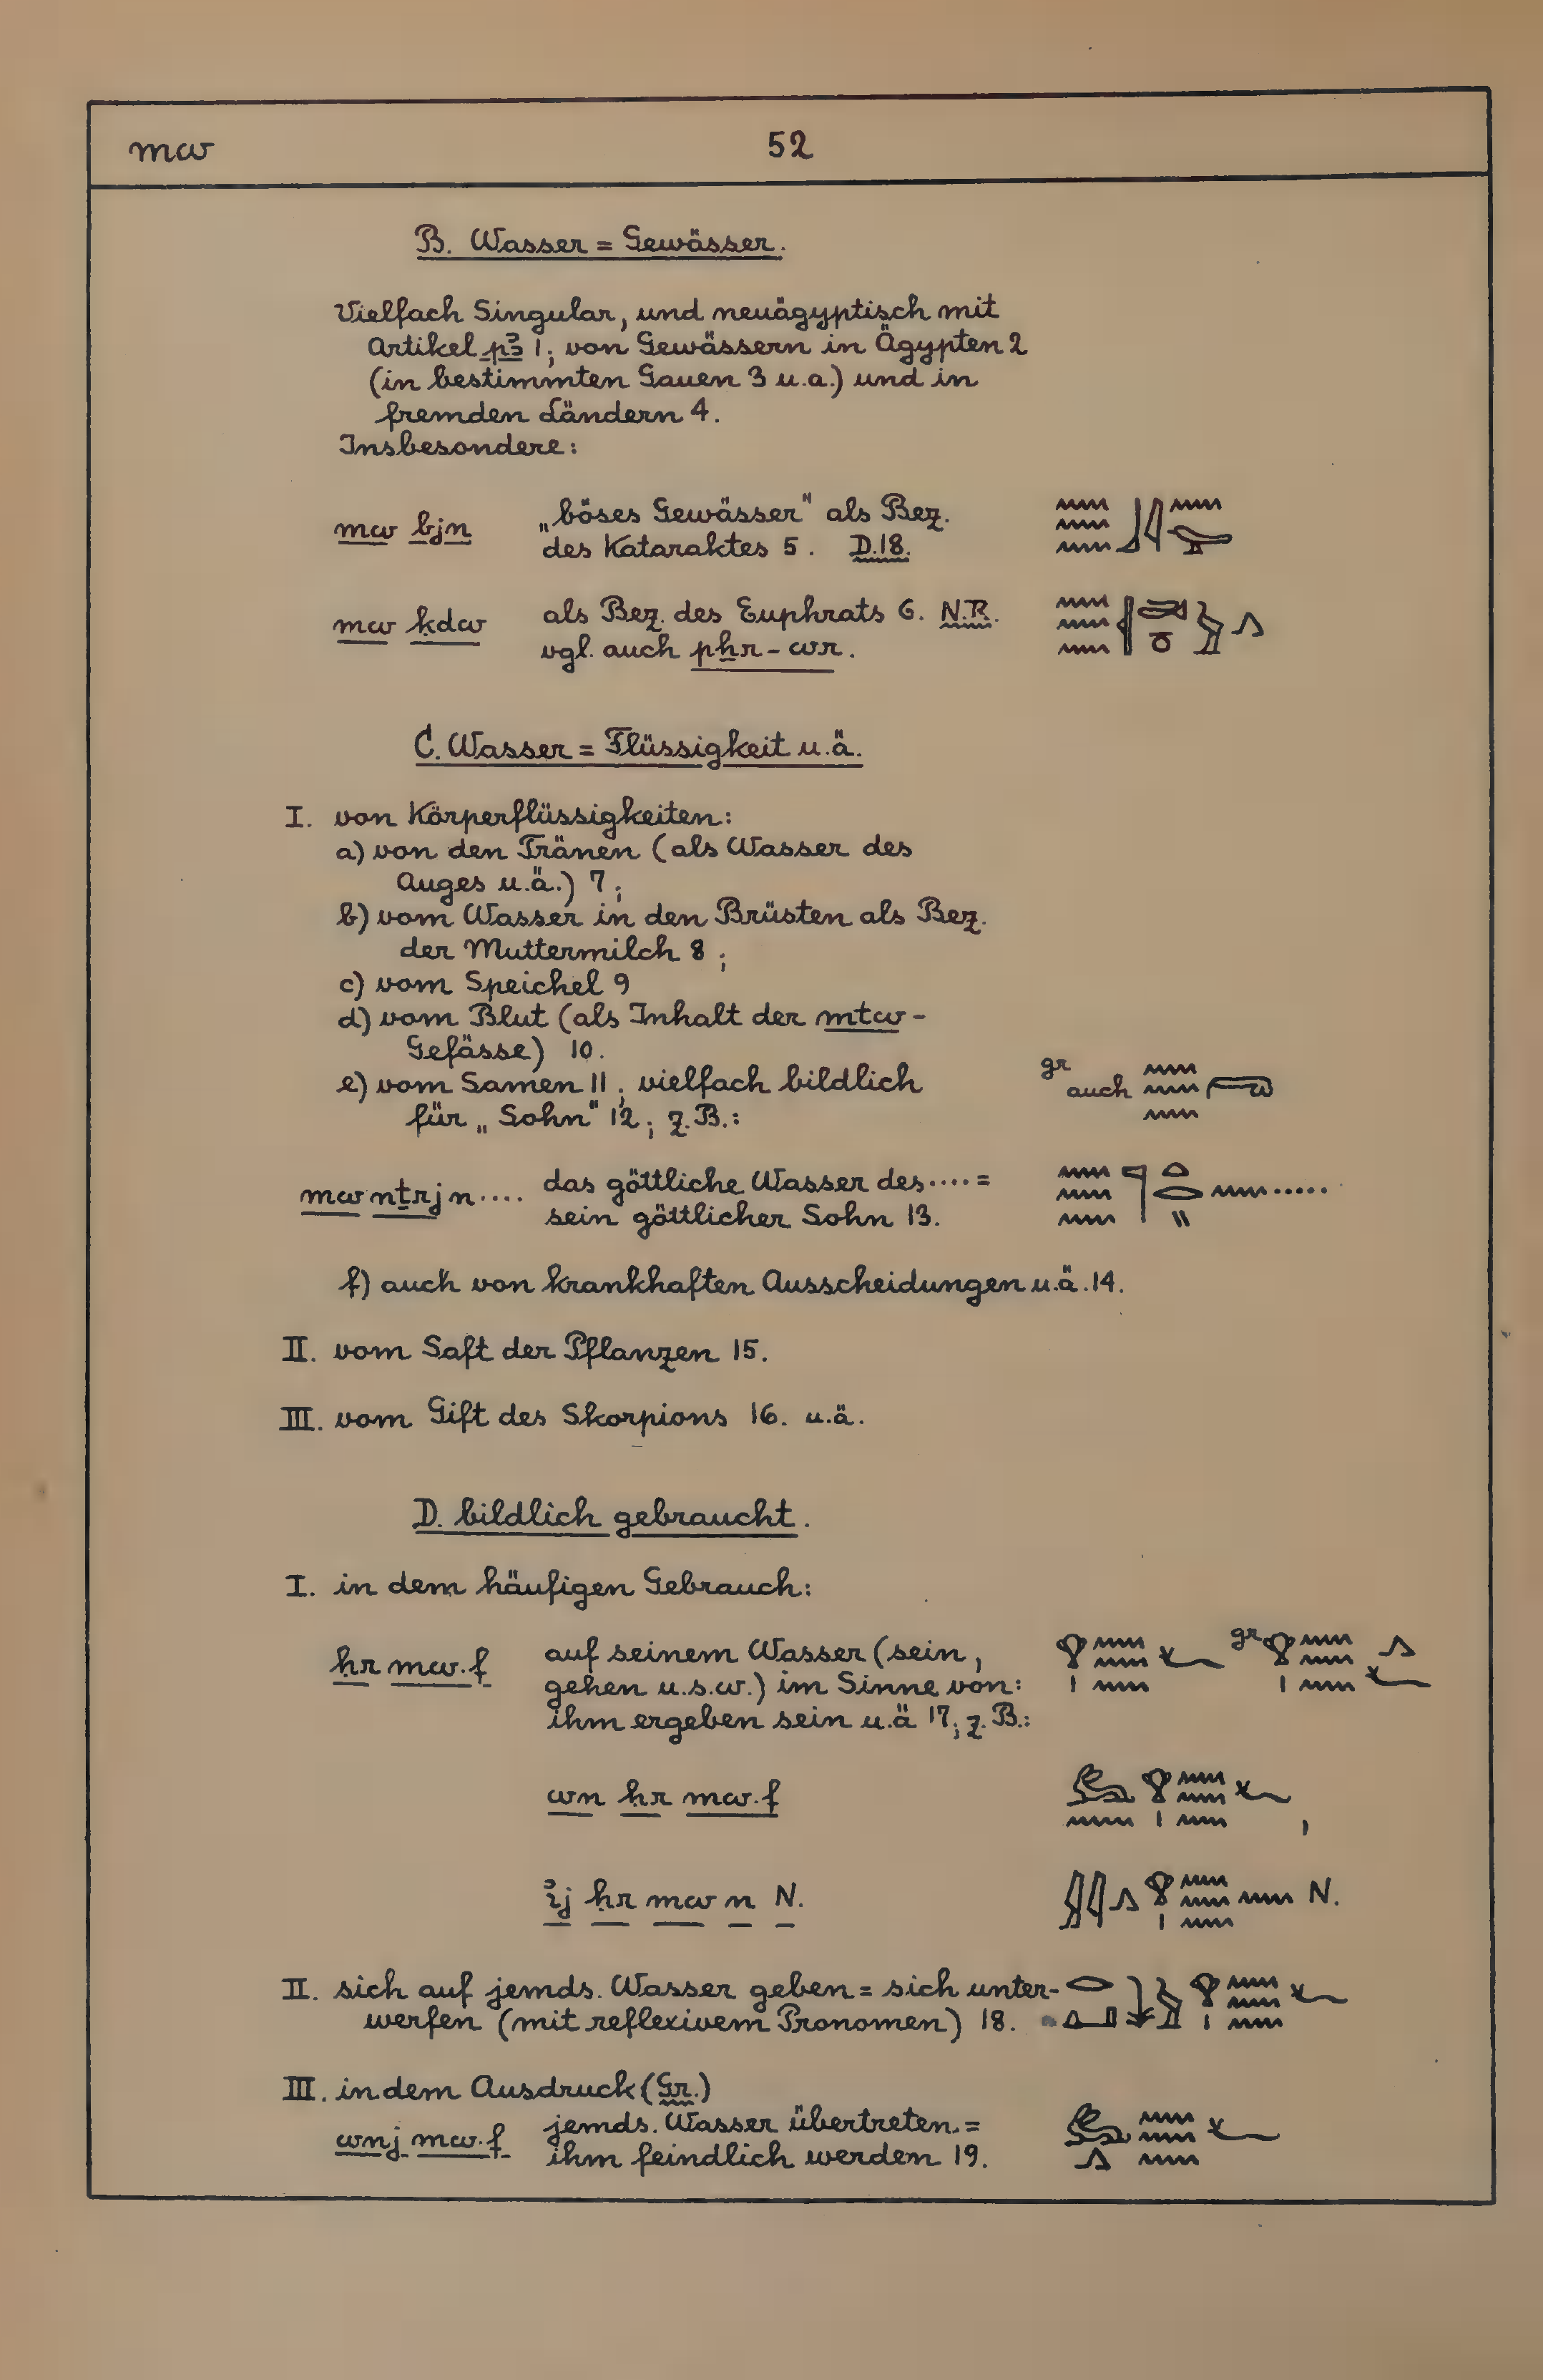 mw 52
B. Wasser = Gewässer.
Vielfach Singular, und neuägyptisch mit
Artikel pꜣ 1; von Gewässern in Ägypten 2
(in bestimmten Gauen 3 u.a.) und in
fremden Ländern 4.
Insbesondere:
mw bjn „böses Gewässer" als Bez. 𓈗𓃀𓇋𓈖𓅪
des Kataraktes 5. D.18.
mw ḳdw als Bez. des Euphrats 6. N.R.
vgl. auch pẖr-wr.
C. Wasser = Flüssigkeit u.ä.
I. von Körperflüssigkeiten:
a) von den Tränen (als Wasser des
Auges u.ä.) 7;
b) vom Wasser in den Brüsten als Bez.
der Muttermilch 8;
c) vom Speichel 9
d) vom Blut (als Inhalt der mtw-
Gefässe) 10.
e) vom Samen 11; vielfach bildlich gr auch 𓈗𓂺
für „Sohn" 12; z.B.:
mw nṯrj n .... das göttliche Wasser des .... = 𓈗𓊹𓏏𓂋𓏭𓈖.....
sein göttlicher Sohn 13.
f) auch von krankhaften Ausscheidungen u.ä. 14.
II. vom Saft der Pflanzen 15.
III. vom Gift des Skorpions 16. u.ä.
D. bildlich gebraucht.
I. in dem häufigen Gebrauch:
ḥr mw.f auf seinem Wasser (sein, 𓁷𓏤𓈗𓆑 gr 𓁷𓏤𓈗𓂻𓆑
gehen u.s.w.) im Sinne von:
ihm ergeben sein u.ä 17; z.B.:
wn ḥr mw.f 𓃹𓈖𓁷𓏤𓈗𓆑,
ꞽj ḥr mw n N. 𓇋𓇋𓂻𓁷𓏤𓈗𓈖 N.
II. sich auf jemds. Wasser geben = sich unter-
werfen (mit reflexivem Pronomen) 18.
III. in dem Ausdruck (Gr.)
wnj mw.f jemds. Wasser übertreten = 𓃹𓂻𓈗𓆑
ihm feindlich werden 19.